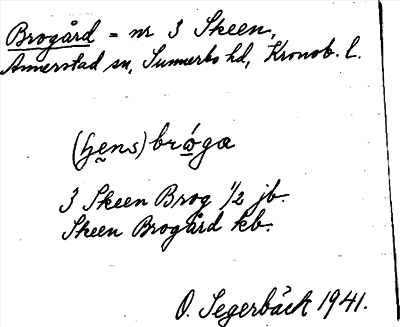 Brogård = nr 3 Skeen,
Annerstad sn, Sunnerbo hd, Kronob. l.
(hens) bróga
3 Skeen Brog 1/2 jb.
Skeen Brogård kb.
O. Segerbäck 1941.